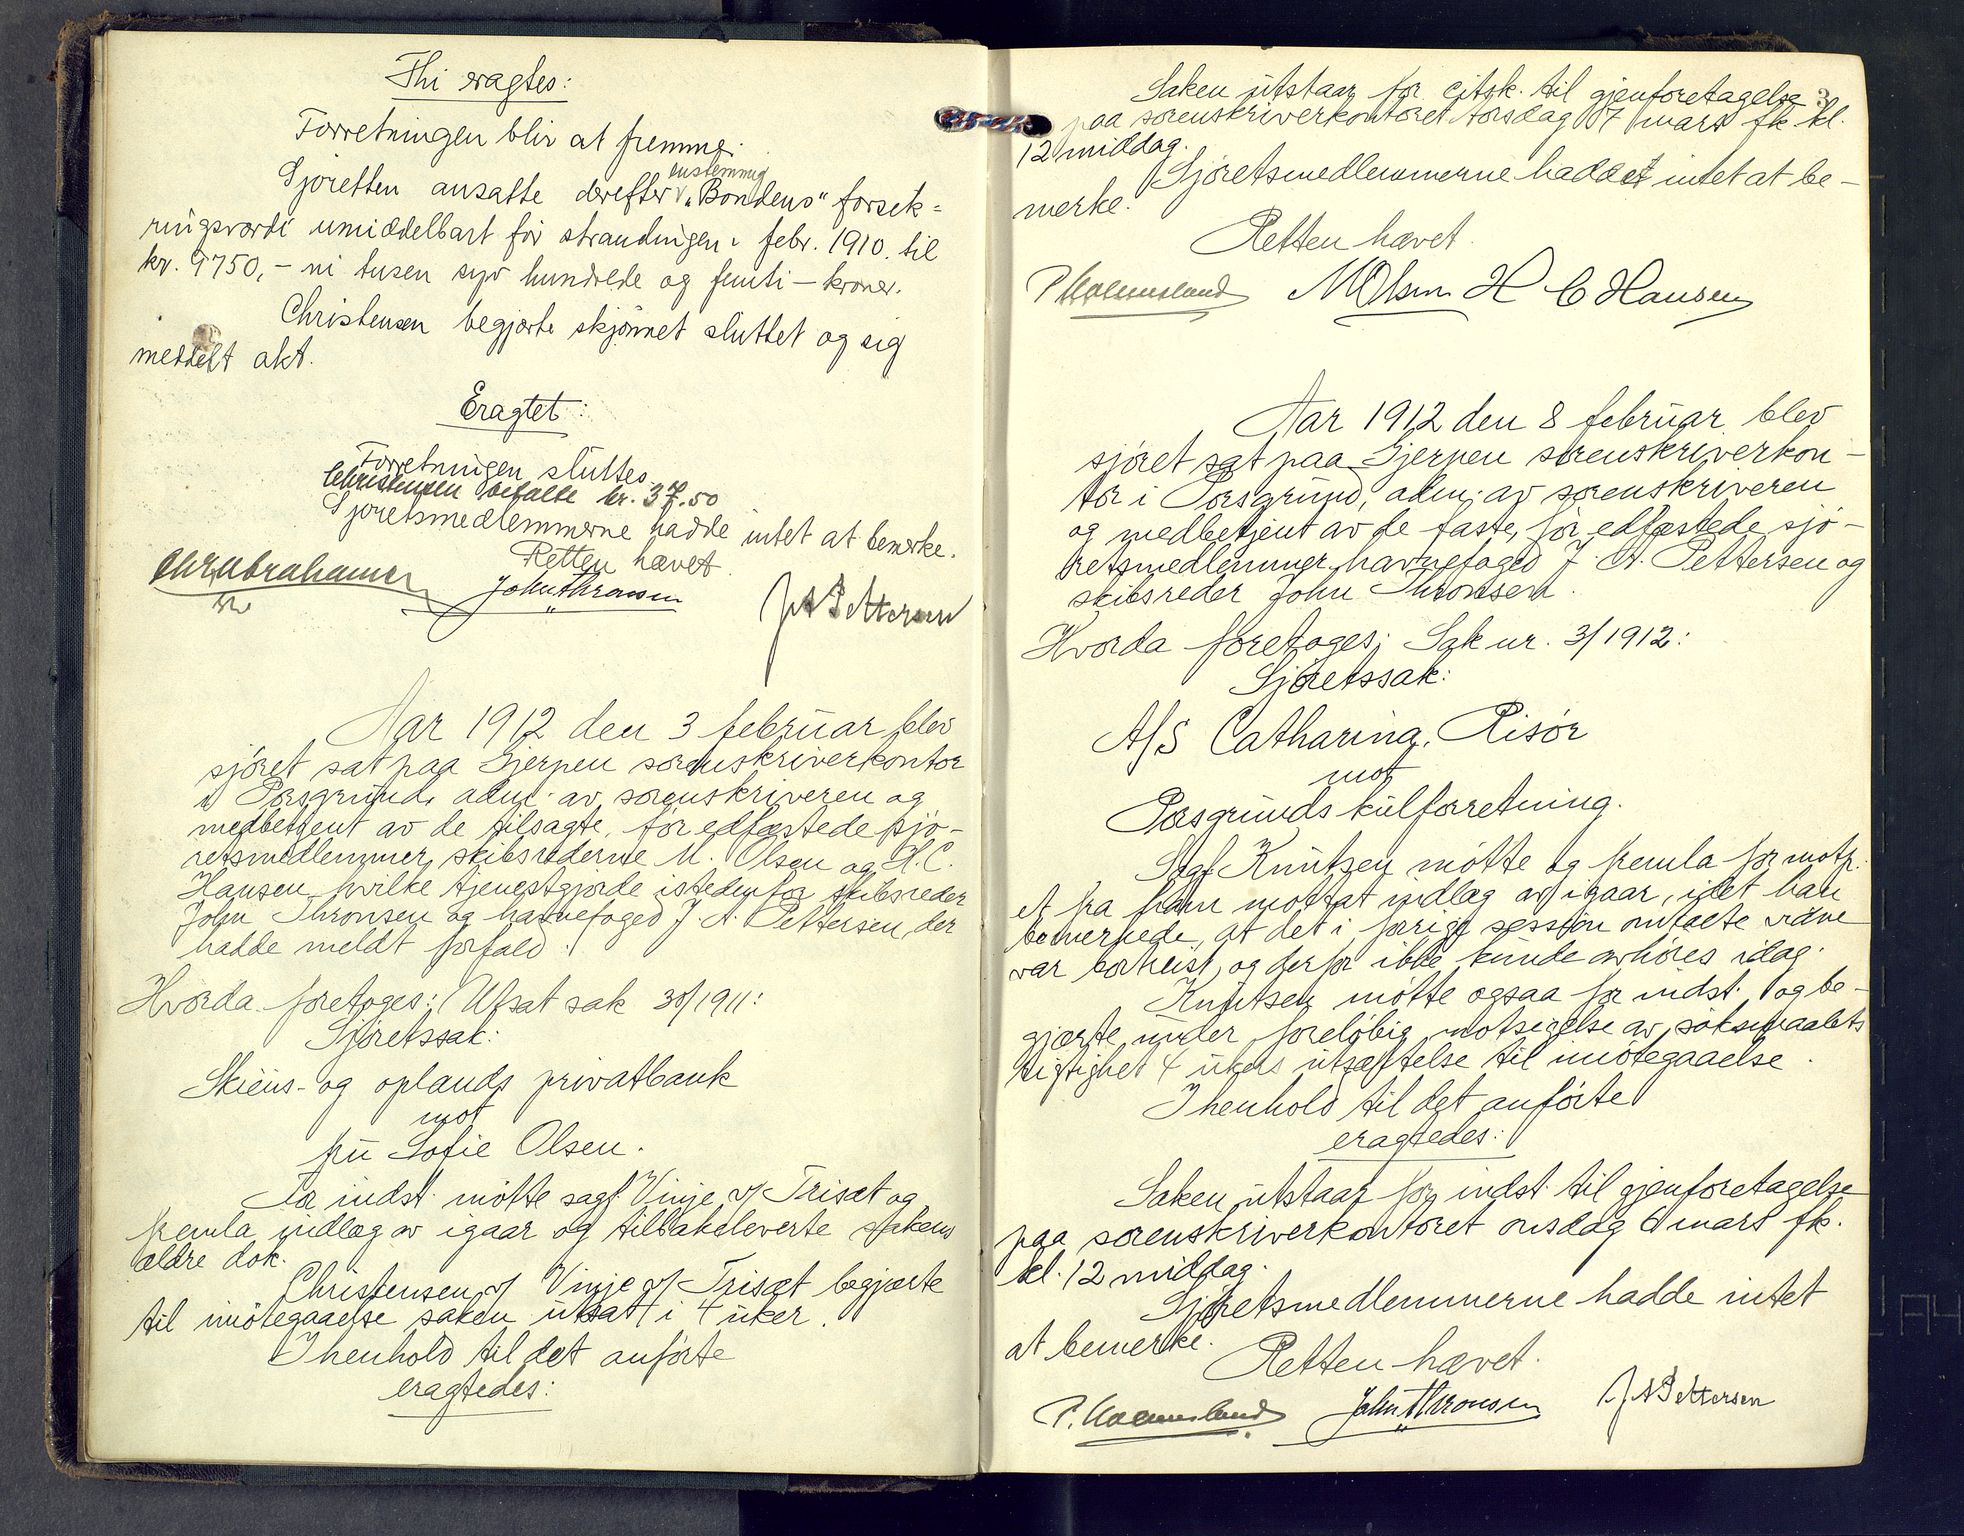 Thi eragtes:
Forretningen blir at fremme.
Sjøretten ansatte derefter enstemmig "Bondens" forsik=
ringsværdi umiddelbart før strandingen i febr. 1910. til
kr. 9750,- ni tusen syv hundrede og femti - kroner.
Christensen begjærte skjønnet sluttet og sig
meddelt akt.
Eragtet:
Forretningen sluttes.
Christensen betalte kr. .50
Sjøretsmedlemmerne hadde intet at bemerke.
Retten hævet.
Chr Abrahamsen
John Thronsen
J A Pettersen
Aar 1912 den 3 februar blev
sjøret sat paa Gjerpen sorenskriverkontor
i Porsgrund, adm. av sorenskriveren og
medbetjent av de tilsagte, før edfæstede sjø-
retsmedlemmer, skibsrederne M. Olsen og H. C.
Hansen, hvilke tjenestgjorde istedenfor skibsreder
John Thronsen og havnefoged J. A. Pettersen, der
hadde meldt forfald.
Hvorda foretoges: Utsat sak 30/1911:
Sjøretssak:
Skiens- og oplands privatbank
mot
fru Sofie Olsen.
For indst. møtte sagf. Vinje v/ Trisæt og
fremla indlæg av igaar og tilbakeleverte sakens
ældre dok.
Christensen v/ Vinje v/ Trisæt begjærte
til imøtegaaelse saken utsat i 4 uker.
I henhold til det anførte
eragtedes:
3
Saken utstaar for citsk. til gjenforetagelse
paa sorenskriverkontoret torsdag 7 mars fk. kl.
12 middag.
Sjøretsmedlemmerne hadde intet at be-
merke.
Retten hævet.
M Olsen H C Hansen
Aar 1912 den 8 februar blev
sjøret sat paa Gjerpen sorenskriverkon-
tor i Porsgrund, adm. av sorenskriveren
og medbetjent av de faste, før edfæstede sjø-
retsmedlemmer, havnefoged J. A. Pettersen og
skibsreder John Thronsen.
Hvorda foretoges: Sak nr. 3/1912:
Sjøretssak:
A/S Catharina, Risør
mot
Porsgrunds kulforretning.
Sagf. Knutzen møtte og fremla for motp.
et fra ham mottat indlæg av igaar, idet han
bemerkede, at det i forrige session omtalte vidne
var bortreist, og derfor ikke kunde avhøres idag.
Knutsen møtte ogsaa for indst. og be-
gjærte under foreløbig motsigelse av søksmaalets
rigtighet 4 ukers utsættelse til imøtegaaelse.
I henhold til det anførte
eragtedes:
Saken utstaar for indst. til gjenforetagelse
paa sorenskriverkontoret onsdag 6 mars fk.
kl. 12 middag.
Sjøretsmedlemmerne hadde intet
at bemerke.
Retten hævet.
John Thronsen
J A Pettersen